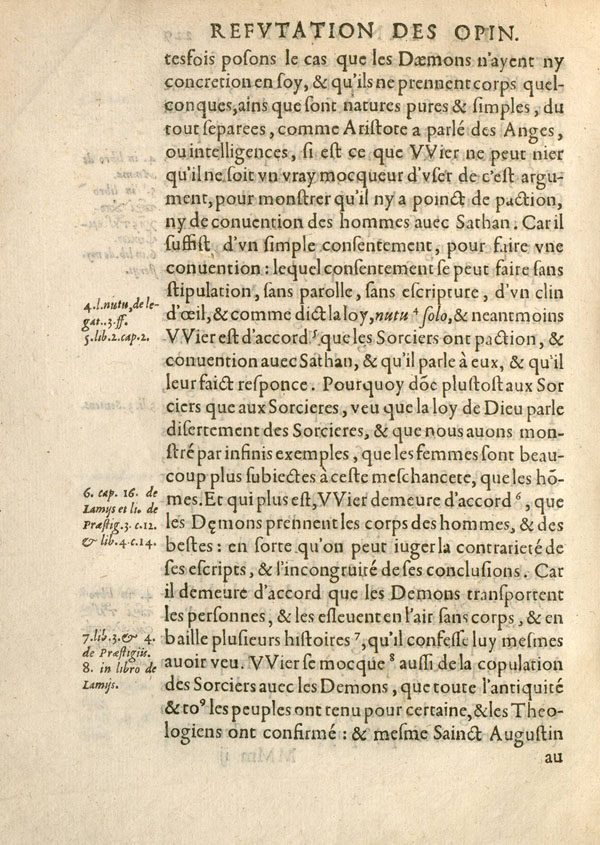 REFVTATION DES OPIN.
tesfois posons le cas que les Dæmons n'ayent ny
concretion en soy, & qu'ils ne prennent corps quel-
conques, ains que sont natures pures & simples, du
tout separees, comme Aristote a parlé des Anges,
ou intelligences, si est ce que VVier ne peut nier
qu'il ne soit vn vray mocqueur d'vser de c'est argu-
ment, pour monstrer qu'il ny a poinct de paction,
ny de conuention des hommes auec Sathan. Car il
suffist d'vn simple consentement, pour faire vne
conuention : lequel consentement se peut faire sans
stipulation, sans parolle, sans escripture, d'vn clin
d'œil, & comme dict la loy, nutu ⁴ solo, & neantmoins
VVier est d'accord ⁵, que les Sorciers ont paction, &
conuention auec Sathan, & qu'il parle à eux, & qu'il
leur faict responce. Pourquoy dõc plustost aux Sor
ciers que aux Sorcieres, veu que la loy de Dieu parle
disertement des Sorcieres, & que nous auons mon-
stré par infinis exemples, que les femmes sont beau-
coup plus subiectes à ceste meschancete, que les hõ-
mes. Et qui plus est, VVier demeure d'accord ⁶, que
les Dęmons prennent les corps des hommes, & des
bestes : en sorte qu'on peut iuger la contrarieté de
ses escripts, & l'incongruité de ses conclusions. Car
il demeure d'accord que les Demons transportent
les personnes, & les esleuent en l'air sans corps, & en
baille plusieurs histoires ⁷, qu'il confesse luy mesmes
auoir veu. VVier se mocque ⁸ aussi de la copulation
des Sorciers auec les Demons, que toute l'antiquité
& to⁹ les peuples ont tenu pour certaine, & les Theo-
logiens ont confirmé : & mesme Sainct Augustin
au
4. l. nutu, de le-
gat..3. ff.
5. lib. 2. cap. 2.
6. cap. 16. de
Lamijs et li. de
Præstig. 3. c. 12.
& lib. 4. c. 14.
7. lib. 3. & 4.
de Præstigijs.
8. in libro de
Lamijs.